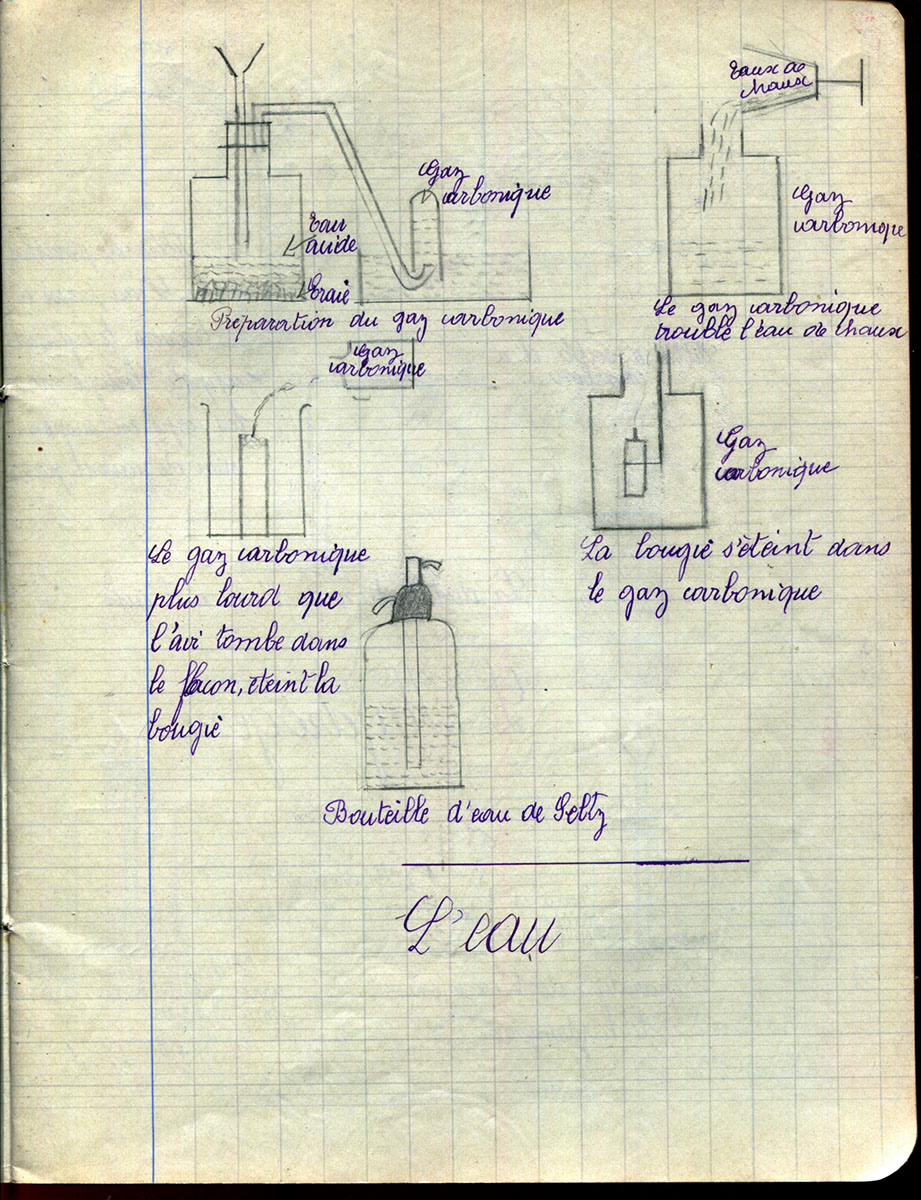 Eaux de
chaux
Gaz
carbonique
Eau
acide
Craie
Préparation du gaz carbonique
Gaz
carbonique
Le gaz carbonique
trouble l'eau de chaux
Gaz
carbonique
Le gaz carbonique
plus lourd que
l'air tombe dans
le flacon, eteint la
bougie
Gaz
carbonique
La bougie s'éteint dans
le gaz carbonique
Bouteille d'eau de Seltz
L'eau